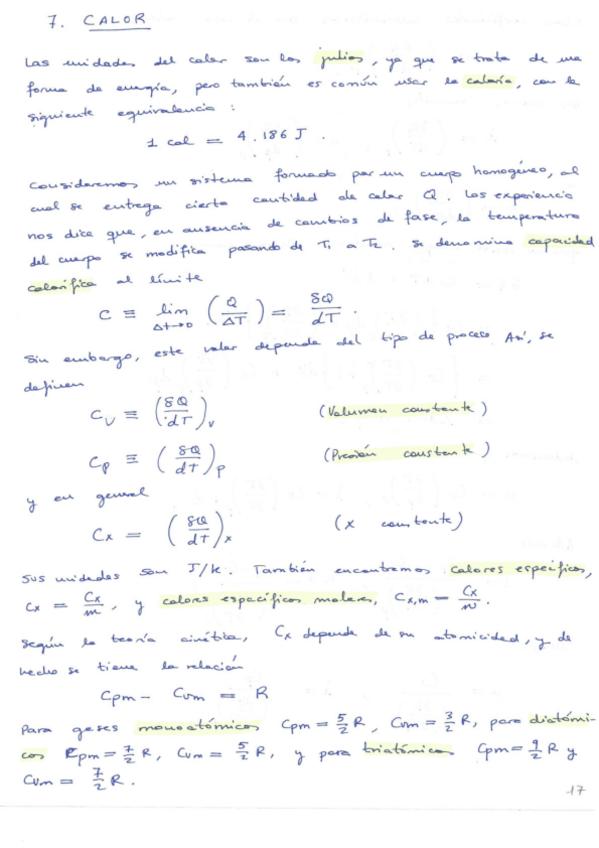 7. CALOR
Las unidades del calor son los julios, ya que se trata de una
forma de energía, pero también es común usar la caloría, con la
siguiente equivalencia :
1 cal = 4.186 J.
Consideremos un sistema formado por un cuerpo homogéneo, al
cual se entrega cierta cantidad de calor Q. Los experiencia
nos dice que, en ausencia de cambios de fase, la temperatura
del cuerpo se modifica pasando de T1 a T2. Se denomina capacidad
calorífica al límite
C ≡ lim Δt→0 (Q/ΔT) = δQ/dT.
Sin embargo, este valor depende del tipo de proceso. Así, se
definen
Cv ≡ (δQ/dT)v (Volumen constante)
Cp ≡ (δQ/dT)p (Presión constante)
y en general
Cx = (δQ/dT)x (x constante)
Sus unidades son J/K. También encontramos calores específicos,
cx = Cx/m, y calores específicos molares, Cx,m = Cx/n.
Según la teoría cinética, Cx depende de su atomicidad, y de
hecho se tiene la relación
Cpm - Cvm = R
Para gases monoatómicos Cpm = 5/2 R, Cvm = 3/2 R, para diatómi-
cos Cpm = 7/2 R, Cvm = 5/2 R, y para triatómicos Cpm = 9/2 R y
Cvm = 7/2 R.
17